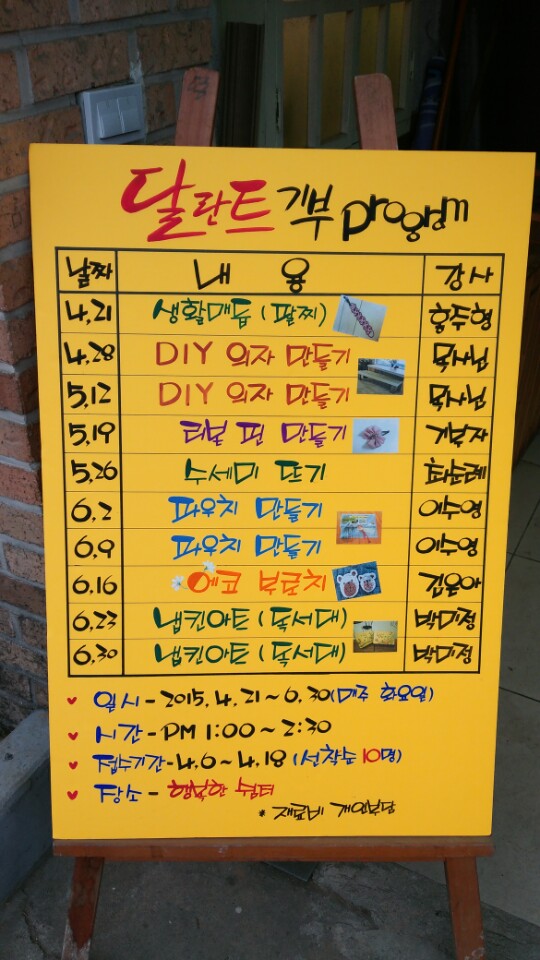 달란트 기부 program
날짜 내용 강사
4.21 생활매듭 (팔찌) 홍주형
4.28 DIY 의자 만들기 목사님
5.12 DIY 의자 만들기 목사님
5.19 리본 핀 만들기 기본자
5.26 수세미 뜨기 최순례
6.2 파우치 만들기 이수영
6.9 파우치 만들기 이수영
6.16 에코 브로치 김은아
6.23 냅킨아트 (독서대) 박미정
6.30 냅킨아트 (독서대) 박미정
♥ 일시 - 2015. 4. 21 ~ 6. 30 (매주 화요일)
♥ 시간 - PM 1:00 ~ 2:30
♥ 접수기간 - 4.6 ~ 4.18 (선착순 10명)
♥ 장소 - 행복한 쉼터
* 재료비 개인부담